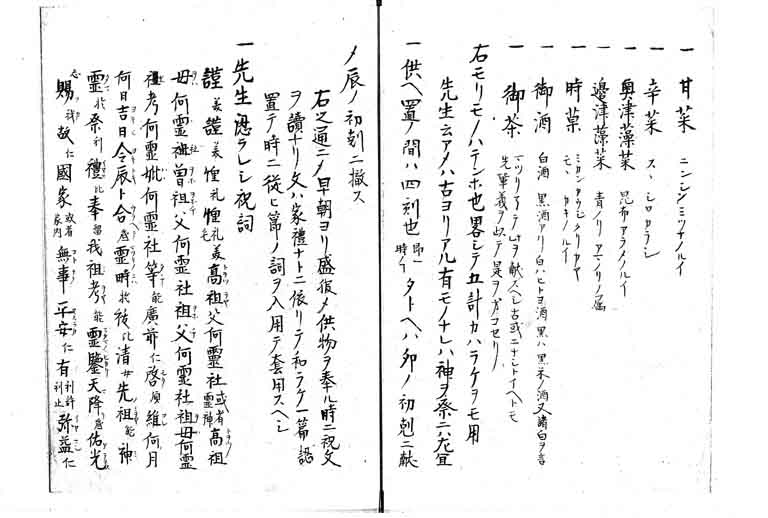 一 甘菜 ニンジンミツバノルイ
一 辛菜 スヽシロカラシ
一 奥津藻菜 昆布アラメノルイ
一 邉津藻菜 青ノリアマノリノ属
一 時菓 ミカンカウジクリカヤモヽカキノルイ
一 御酒 白酒 黒酒アリ白ハヒトヨ酒黒ハ黒米ノ酒又請白ヲ言
一 御茶
右モリモノハテンホ也畧シテ五計カハラケヲモ用
先生云アメハ古ヨリアル有モノナレハ神ヲ祭ニハ尤宜
一 供ヘ置ノ間ハ四刻也 即一時ノ タトヘハ卯ノ初剋ニ献
メ辰ノ初剋ニ撤ス
右之通ニメ早朝ヨリ盛服メ供物ヲ奉ル時ニ祝文
ヲ讀ナリ文ハ家禮ナトニ依リテ和ラケ一篇認
置テ時ニ從ヒ節ノ詞ヲ入用テ套用スヘシ
一 先生 ラレシ祝詞
謹美謹美惶礼惶礼毛美高祖父何靈社 或者靈神 高祖
母何靈社曽祖父何靈社祖父何靈社祖母何靈
社考何靈妣何靈社等能廣前仁啓須維何月
何日吉日令辰卜合 靈時 彼 清 先祖能神
靈 祭利禮比奉留我祖考能靈鑒天降 佑光
賜 故仁國家 或者家内 無事平安仁有 弥益仁